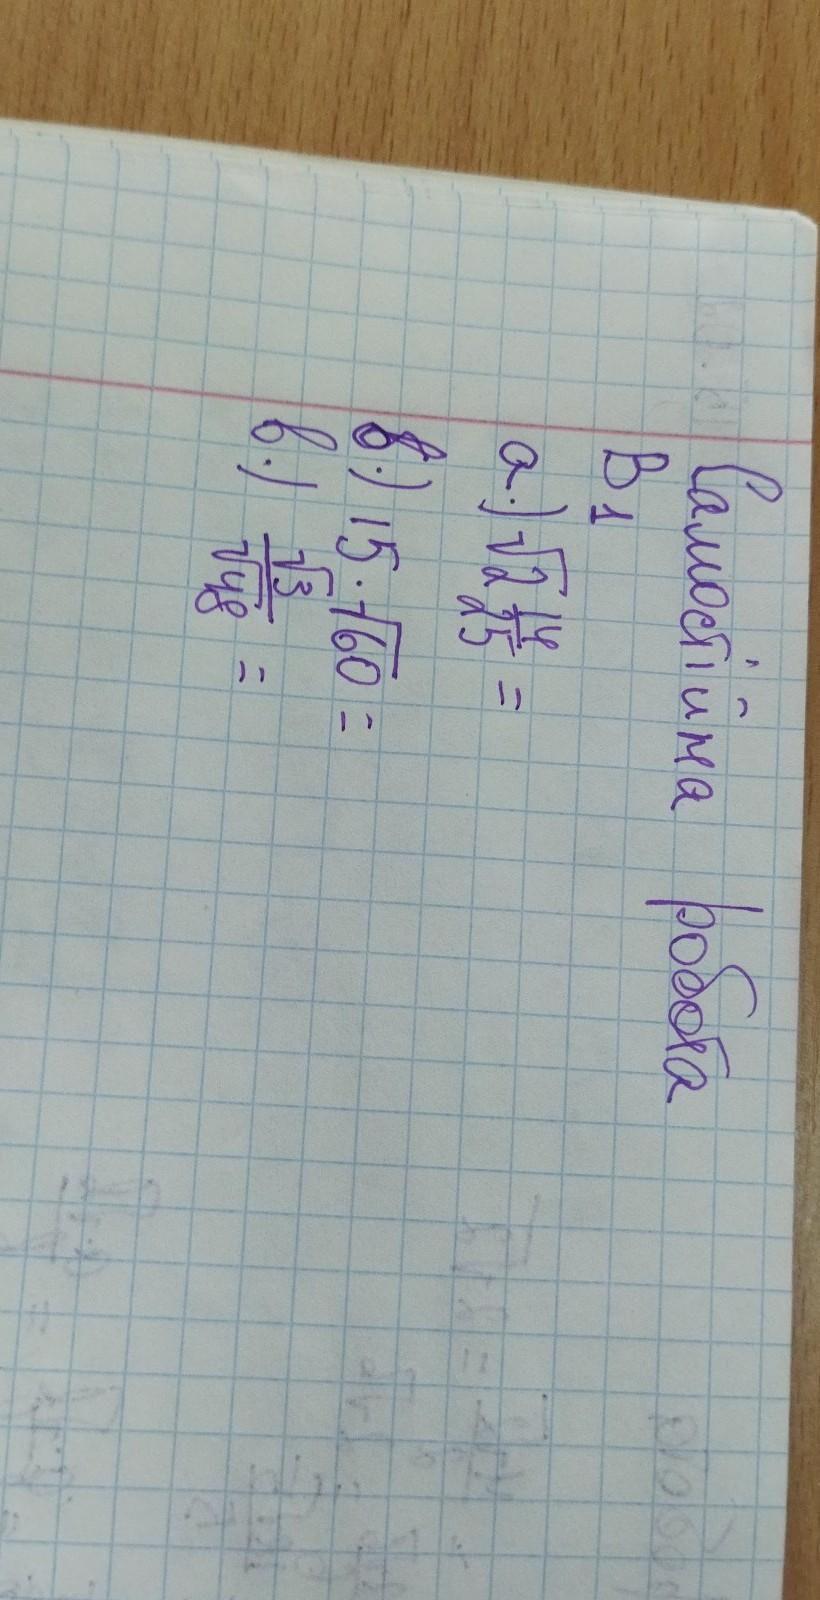 Самостійна робота
В 1
а.) √2 14/25 =
б.) 15 · √60 =
в.) √3/√48 =